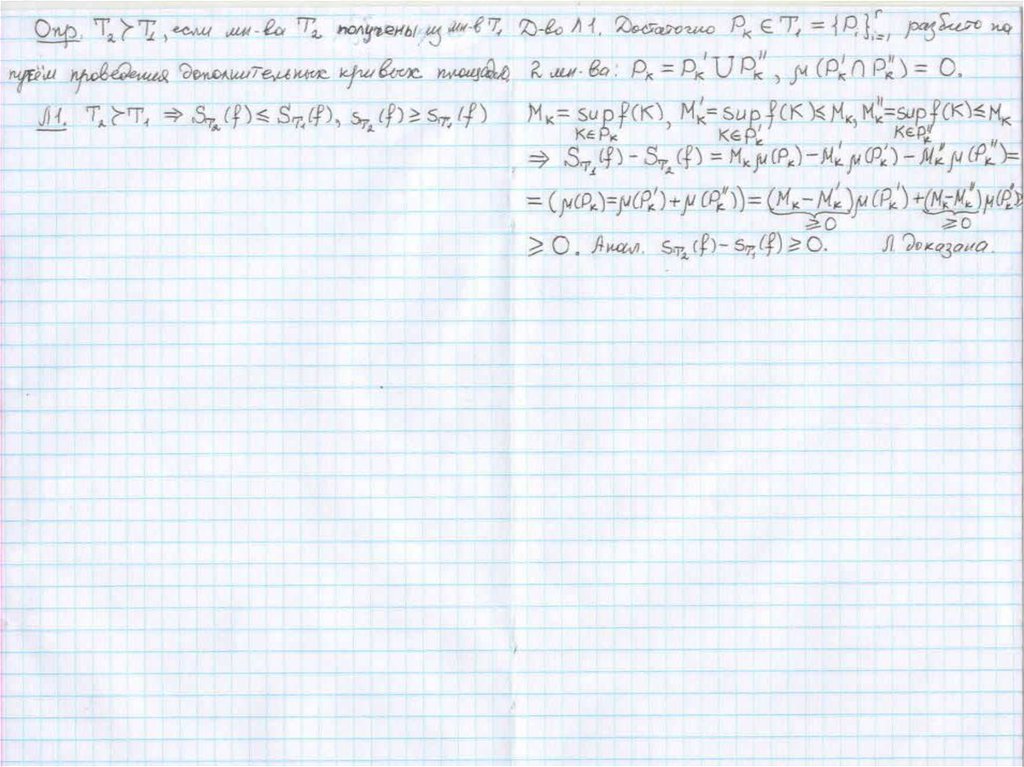 Опр. T₂>T₁, если мн-ва T₂ получены из мн-в T₁
путём проведения дополнительных кривых площади
Л1. T₂>T₁ ⇒ S_T₂(f) ≤ S_T₁(f), s_T₂(f) ≥ s_T₁(f)
Д-во Л1. Достаточно P_K ∈ T₁ = {P_i}_{i=1}^r, разбито на
2 мн-ва: P_K = P_K' ∪ P_K'', μ(P_K' ∩ P_K'') = 0.
M_K = sup f(K), M_K' = sup f(K) ≤ M_K, M_K'' = sup f(K) ≤ M_K
K∈P_K K∈P_K' K∈P_K''
⇒ S_T₁(f) − S_T₂(f) = M_K μ(P_K) − M_K' μ(P_K') − M_K'' μ(P_K'') =
= (μ(P_K) = μ(P_K') + μ(P_K'')) = (M_K − M_K') μ(P_K') + (M_K − M_K'') μ(P_K'')
≥0 ≥0
≥ 0. Анал. s_T₂(f) − s_T₁(f) ≥ 0. Л доказана.